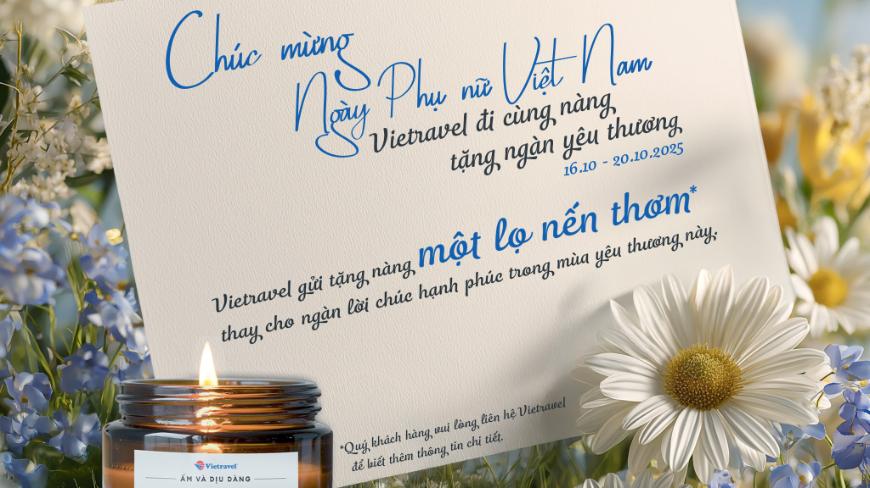 Chúc mừng
Ngày Phụ nữ Việt Nam
Vietravel đi cùng nàng
tặng ngàn yêu thương
16.10 - 20.10.2025
Vietravel gửi tặng nàng một lọ nến thơm*
thay cho ngàn lời chúc hạnh phúc trong mùa yêu thương này.
*Quý khách hàng vui lòng liên hệ Vietravel
để biết thêm thông tin chi tiết.
Vietravel
ẤM VÀ DỊU DÀNG